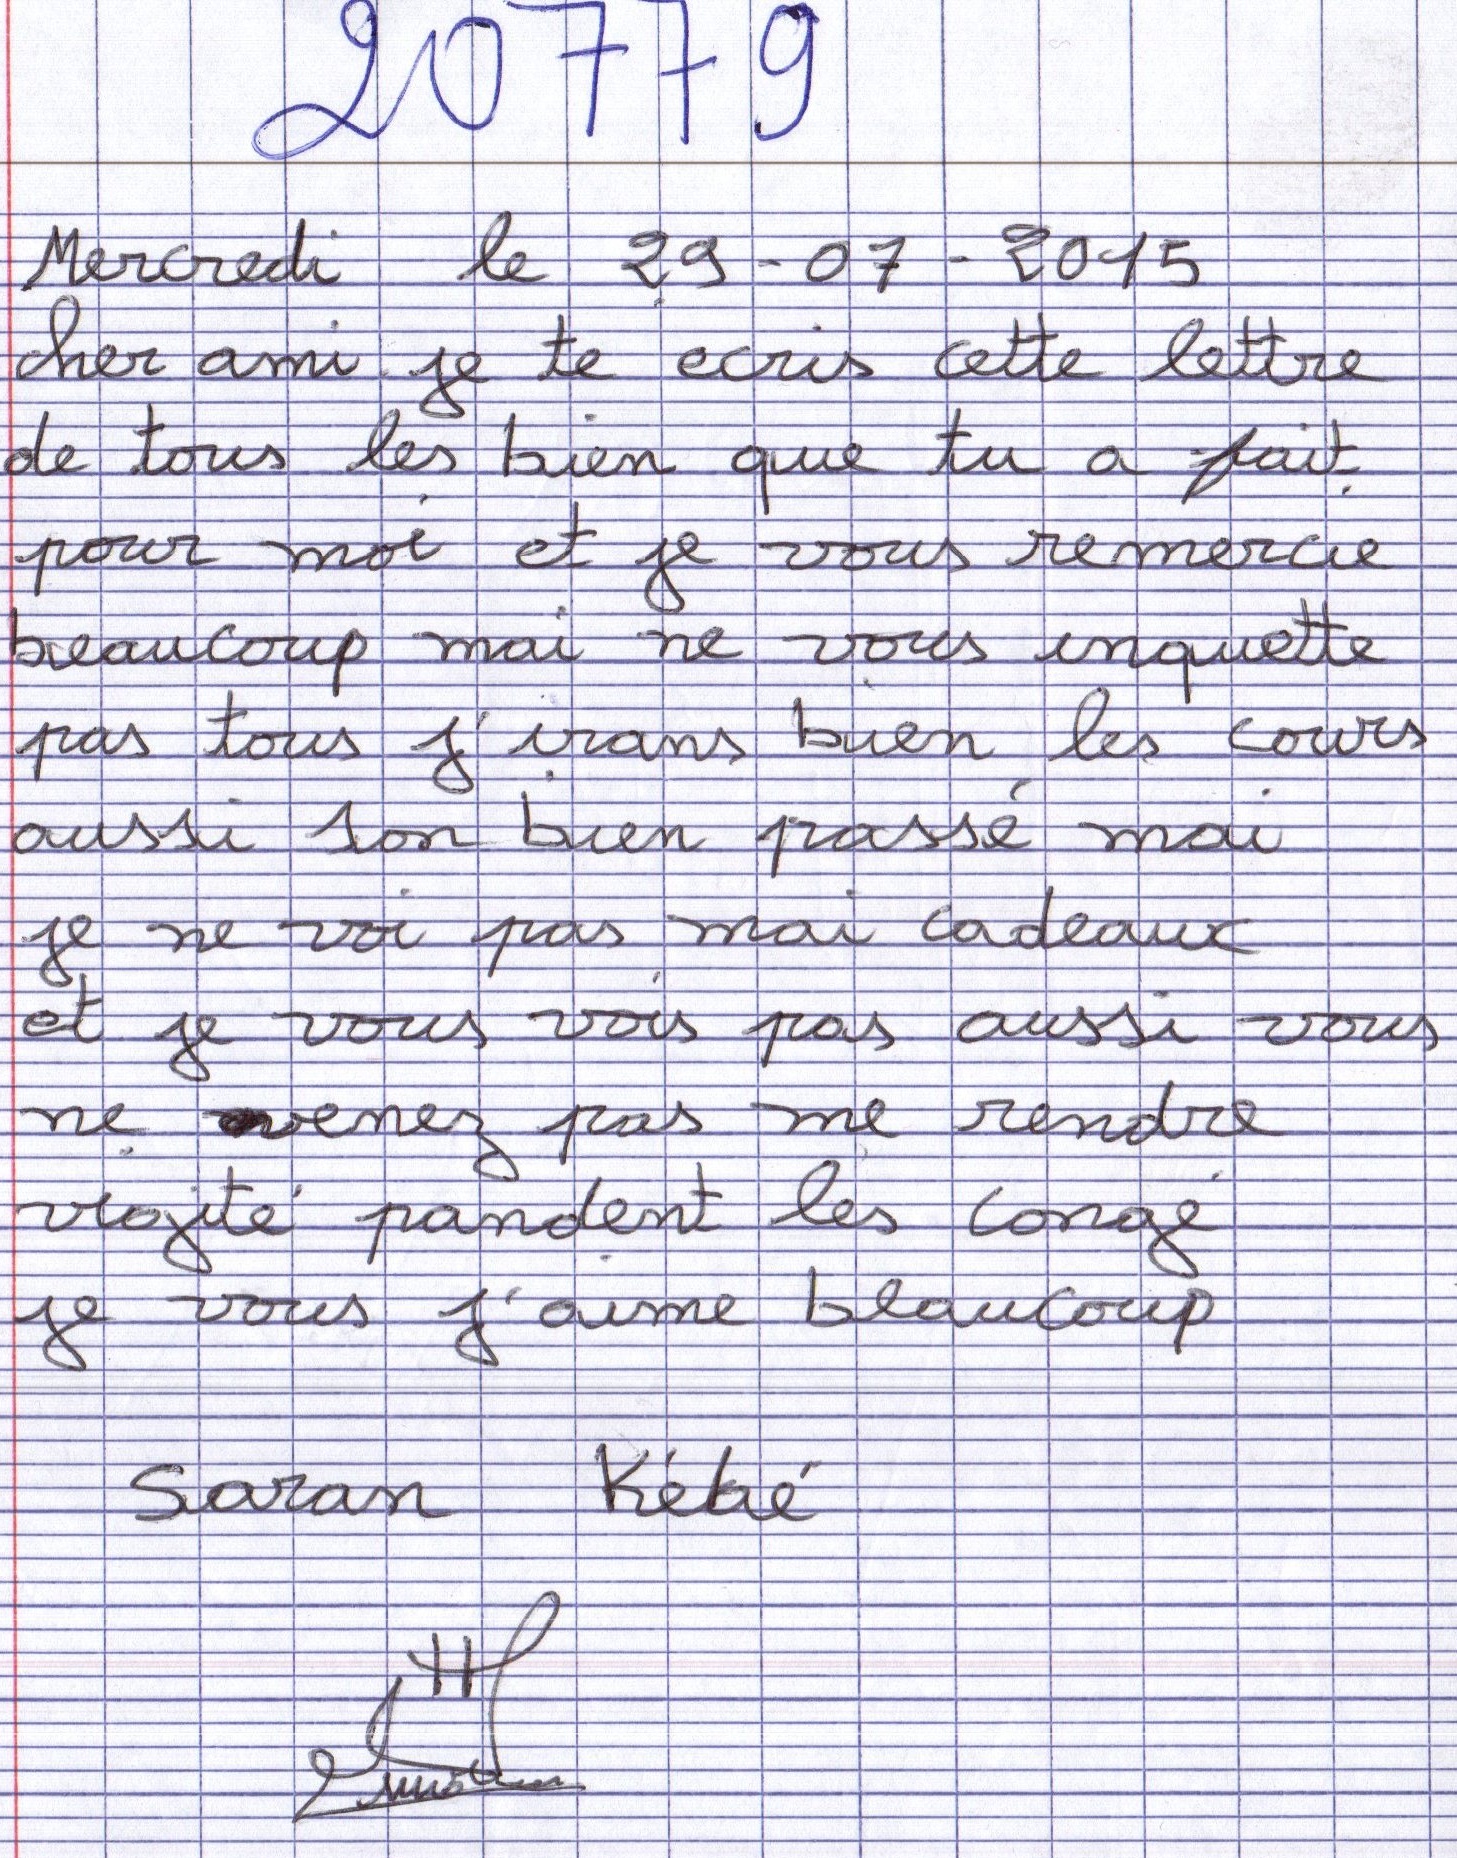 20779
Mercredi le 29-07-2015
cher ami je te ecris cette lettre
de tous les bien que tu a fait
pour moi et je vous remercie
beaucoup mai ne vous inquette
pas tous j'irans bien les cours
aussi son bien passé mai
je ne voi pas mai cadeaux
et je vous vois pas aussi vous
ne venez pas me rendre
viozité pandent les congé
je vous j'aime beaucoup
Saran Kébé